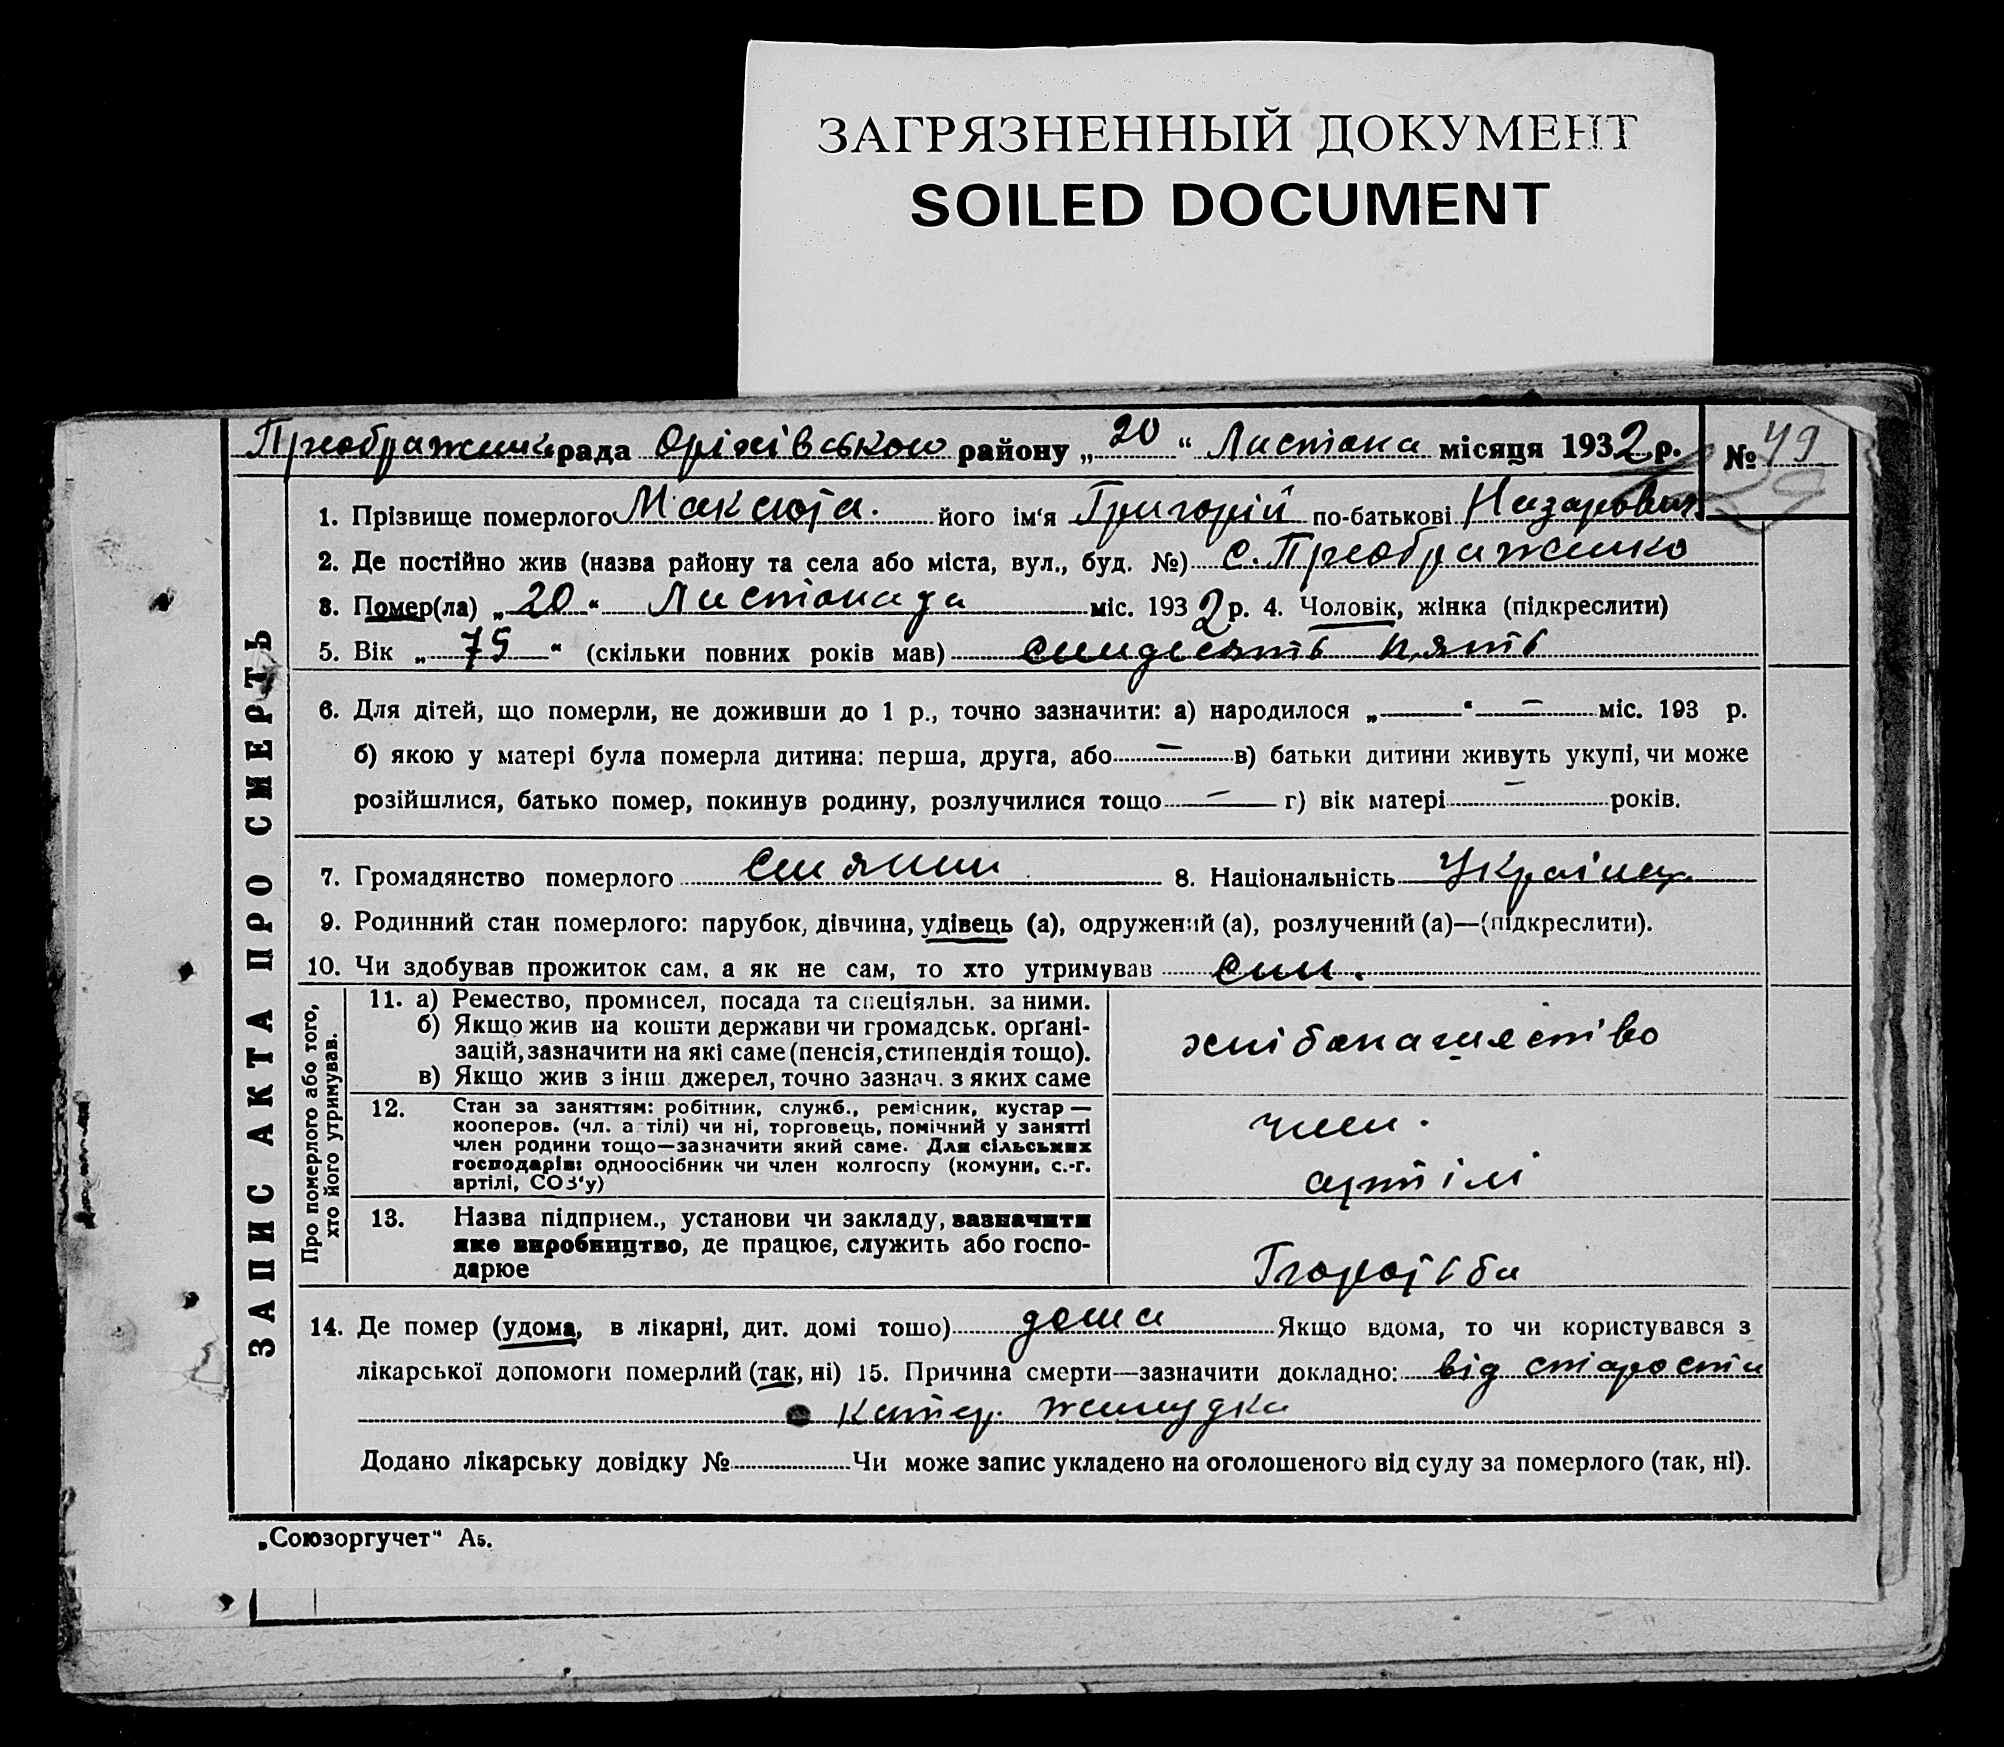 ЗАГРЯЗНЕННЫЙ ДОКУМЕНТ
SOILED DOCUMENT
Преображенка рада Оріхівського району „20“ Листопа місяця 1932 р. № 49
1. Прізвище померлого Максюта. його ім'я Григорій по-батькові Назарович
2. Де постійно жив (назва району та села або міста, вул., буд. №) с. Преображенка
3. Помер(ла) „20“ Листопада міс. 1932 р. 4. Чоловік, жінка (підкреслити)
5. Вік „75“ (скільки повних років мав) симдесять пять
6. Для дітей, що померли, не доживши до 1 р., точно зазначити: а) народилося „—“ — міс. 193 р.
б) якою у матері була померла дитина: перша, друга, або — в) батьки дитини живуть укупі, чи може
розійшлися, батько помер, покинув родину, розлучилися тощо — г) вік матері — років.
7. Громадянство померлого 8. Національність Українець
9. Родинний стан померлого: парубок, дівчина, удівець (а), одружений (а), розлучений (а)—(підкреслити).
10. Чи здобував прожиток сам, а як не сам, то хто утримував син.
ЗАПИС АКТА ПРО СМЕРТЬ
Про померлого або того, хто його утримував.
11. а) Ремество, промисел, посада та спеціяльн. за ними.
б) Якщо жив на кошти держави чи громадськ. орґані-
зацій, зазначити на які саме (пенсія, стипендія тощо).
в) Якщо жив з інш джерел, точно зазнач. з яких саме
хлібопашество
12. Стан за заняттям: робітник, служб., ремісник, кустар—
кооперов. (чл. артілі) чи ні, торговець, помічний у занятті
член родини тощо—зазначити який саме. Для сільських
господарів: одноосібник чи член колгоспу (комуни, с.-г.
артілі, СОЗ'у)
член.
артілі
13. Назва підприєм., установи чи закладу, зазначити
яке виробництво, де працює, служить або госпо-
дарює
14. Де помер (удома, в лікарні, дит. домі тошо) дома Якщо вдома, то чи користувався з
лікарської допомоги померлий (так, ні) 15. Причина смерти—зазначити докладно: від старости
катар. желудка
Додано лікарську довідку № Чи може запис укладено на оголошеного від суду за померлого (так, ні).
„Союзоргучет“ А5.